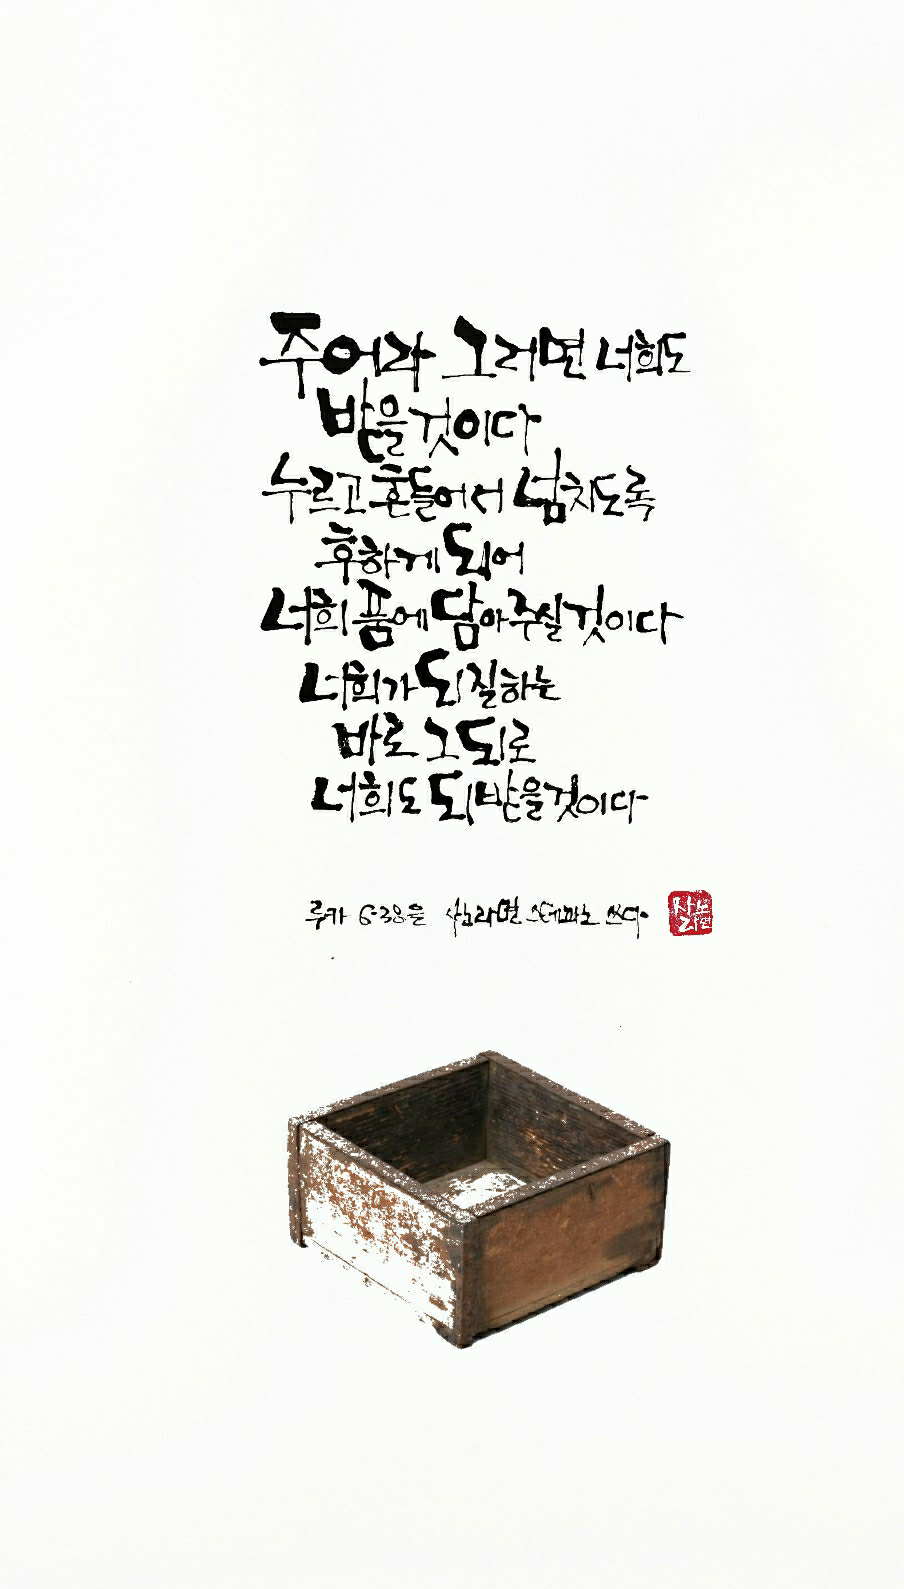 주어라 그러면 너희도
받을 것이다
누르고 흔들어서 넘치도록
후하게 되어
너희 품에 담아 주실 것이다
너희가 되질하는
바로 그 되로
너희도 되받을 것이다
루카 6·38을 스테파노 쓰다